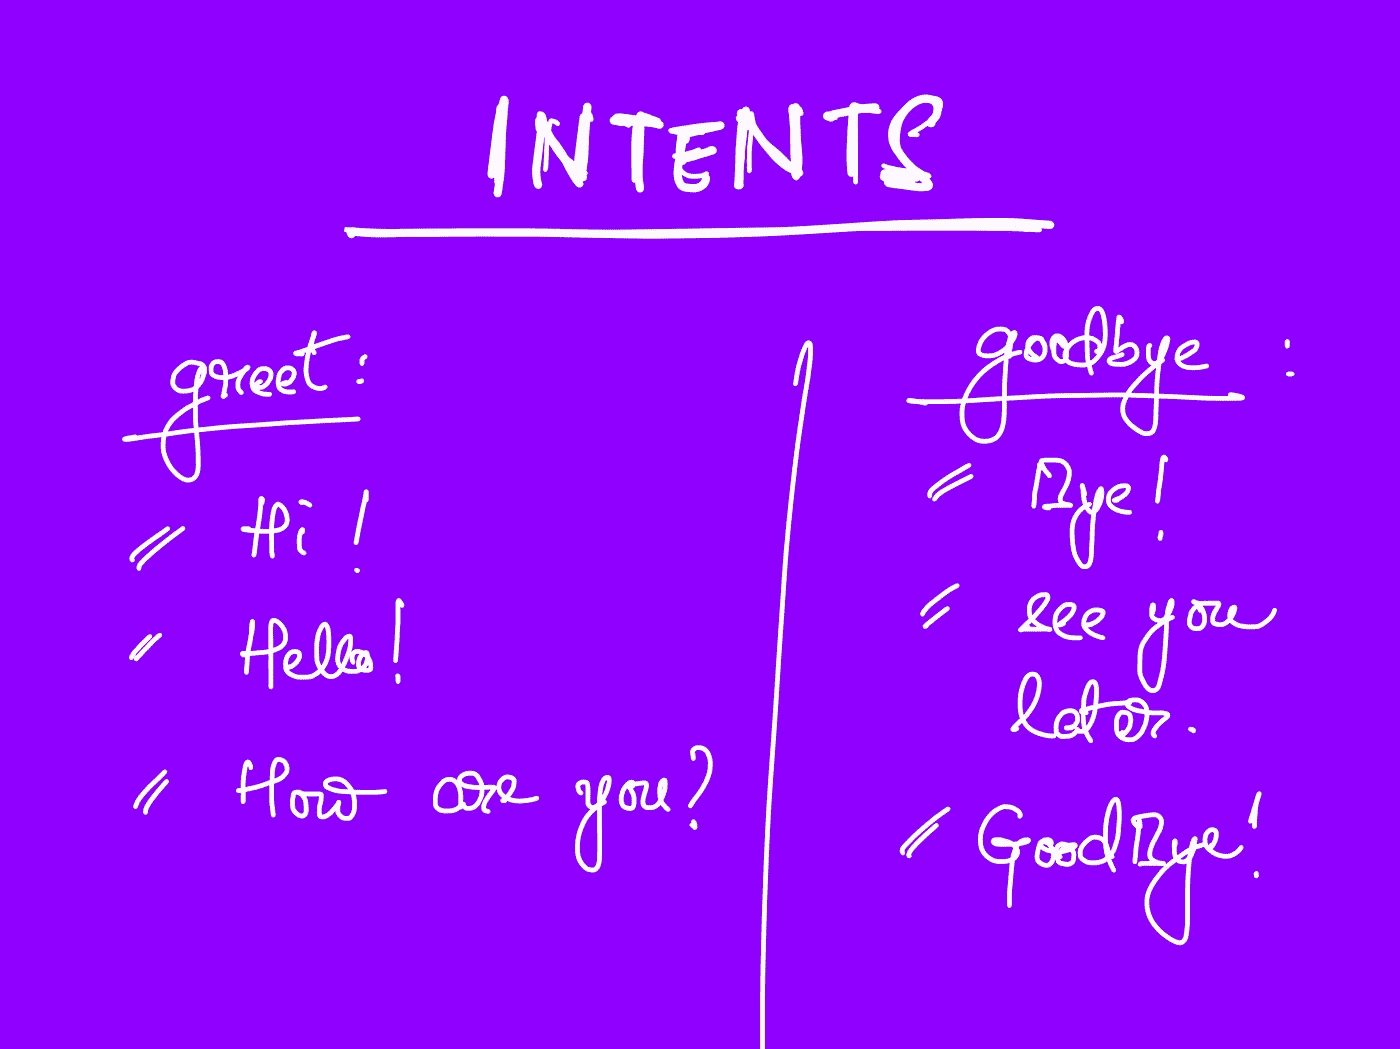 INTENTS
greet:
Hi!
Hello!
How are you?
goodbye :
Bye!
see you
later.
GoodBye!